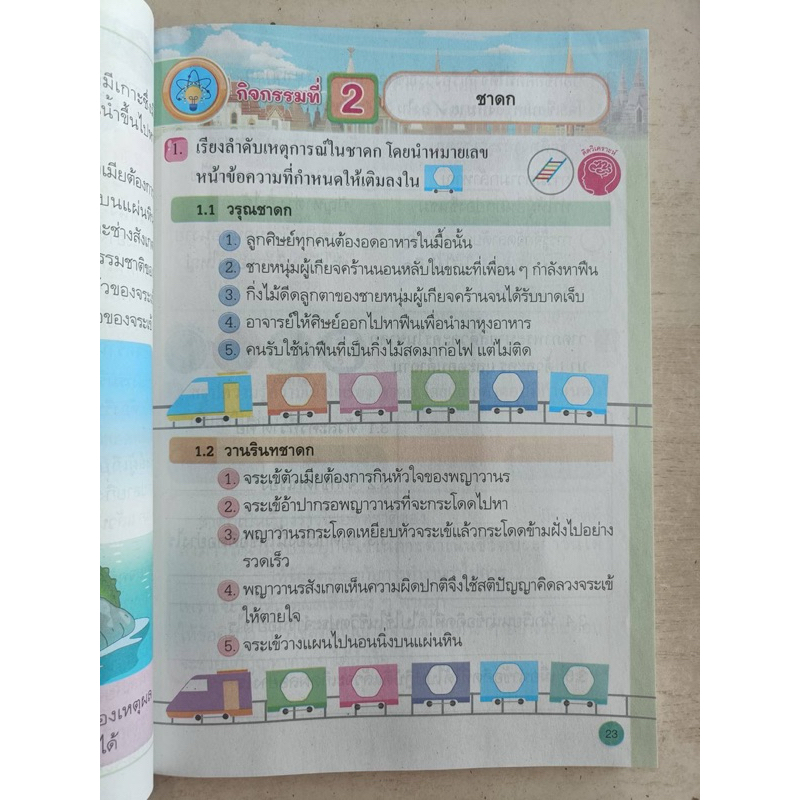 มีเกาะซึ่ง
น้ำขึ้นไปห
เมียต้องกา
บนแผ่นหิน
ะช่างสังเก
รรมชาติขอ
ัวของจระเ
ของจระเข้
องเหตุผล
ได้
กิจกรรมที่ 2 ชาดก
1. เรียงลำดับเหตุการณ์ในชาดก โดยนำหมายเลข
หน้าข้อความที่กำหนดให้เติมลงใน
คิดวิเคราะห์
1.1 วรุณชาดก
1. ลูกศิษย์ทุกคนต้องอดอาหารในมื้อนั้น
2. ชายหนุ่มผู้เกียจคร้านนอนหลับในขณะที่เพื่อน ๆ กำลังหาฟืน
3. กิ่งไม้ดีดลูกตาของชายหนุ่มผู้เกียจคร้านจนได้รับบาดเจ็บ
4. อาจารย์ให้ศิษย์ออกไปหาฟืนเพื่อนำมาหุงอาหาร
5. คนรับใช้นำฟืนที่เป็นกิ่งไม้สดมาก่อไฟ แต่ไม่ติด
1.2 วานรินทชาดก
1. จระเข้ตัวเมียต้องการกินหัวใจของพญาวานร
2. จระเข้อ้าปากรอพญาวานรที่จะกระโดดไปหา
3. พญาวานรกระโดดเหยียบหัวจระเข้แล้วกระโดดข้ามฝั่งไปอย่าง
รวดเร็ว
4. พญาวานรสังเกตเห็นความผิดปกติจึงใช้สติปัญญาคิดลวงจระเข้
ให้ตายใจ
5. จระเข้วางแผนไปนอนนิ่งบนแผ่นหิน
23